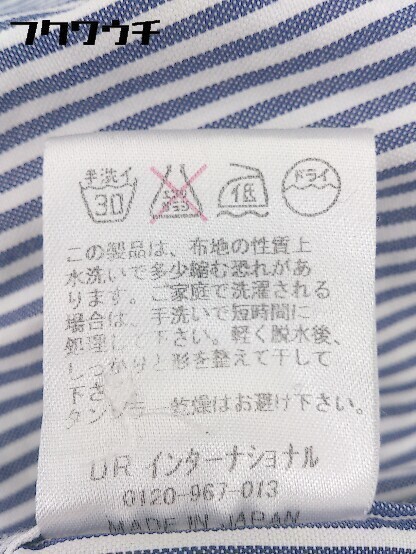 フクウウチ
手洗イ
30
エンソ
サラシ
低
ドライ
この製品は、布地の性質上
水洗いで多少縮む恐れがあ
ります。ご家庭で洗濯される
場合は、手洗いで短時間に
処理して下さい。軽く脱水後、
しっかりと形を整えて干して
下さい。
タンブラー乾燥はお避け下さい。
UR インターナショナル
0120-967-013
MADE IN JAPAN